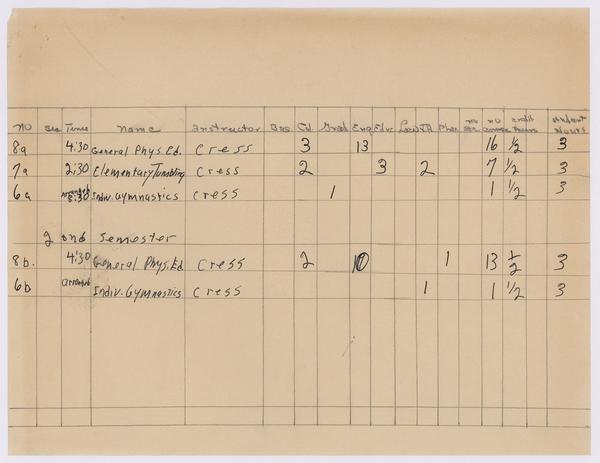 NO Sec Times Name Instructor Bus. Ed. Grad Eng Edu. Law JA Phar. no sec no course credit hours student hours
8a 4:30 General Phys. Ed. Cress 3 13 16 1/2 3
7a 2:30 Elementary Tumbling Cress 2 3 2 7 1/2 3
6a arranged 8:30 Indiv. Gymnastics Cress 1 1 1/2 3
2 ond Semester
8b. 4:30 General Phys. Ed Cress 2 10 1 13 1/2 3
6b arranged Indiv. Gymnastics Cress 1 1 1/2 3